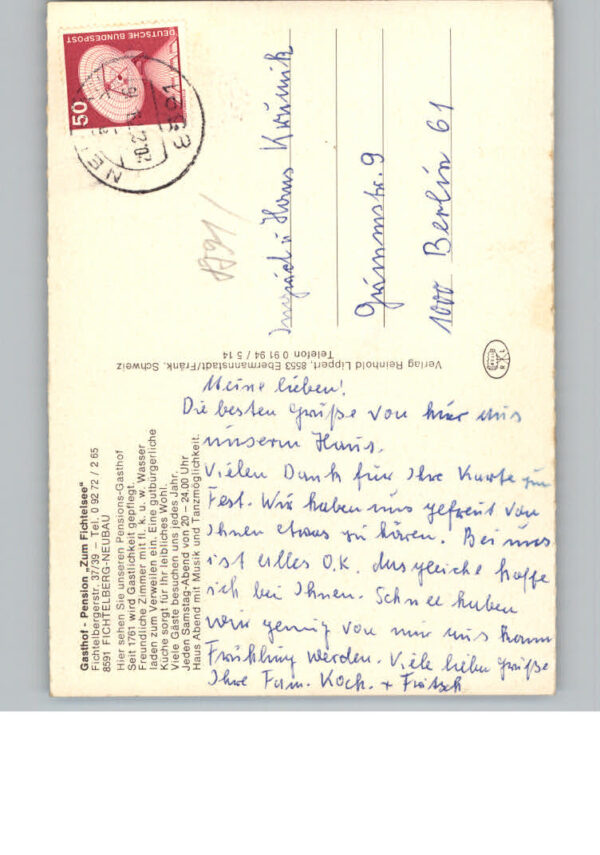 Gasthof - Pension „Zum Fichtelsee"
Fichtelbergerstr. 37/39 – Tel. 0 92 72 / 2 65
8591 FICHTELBERG-NEUBAU
Hier sehen Sie unseren Pensions-Gasthof
Seit 1761 wird Gastlichkeit gepflegt.
Freundliche Zimmer mit fl. k. u. w. Wasser
laden zum Verweilen ein. Eine gutbürgerliche
Küche sorgt für Ihr leibliches Wohl.
Viele Gäste besuchen uns jedes Jahr.
Jeden Samstag-Abend von 20 – 24.00 Uhr
Haus Abend mit Musik und Tanzmöglichkeit.
Meine lieben!
Die besten Grüße von hier aus
unserm Haus.
Vielen Dank für Ihre Karte zum
Fest. Wir haben uns gefreut von
Ihnen etwas zu hören. Bei uns
ist alles O.K. das gleiche hoffe
ich bei Ihnen. Schnee haben
wir genug von mir aus kann
Frühling werden. Viele liebe Grüße
Ihre Fam. Koch. + Fritsch
Verlag Reinhold Lippert, 8553 Ebermannstadt/Fränk. Schweiz
Telefon 0 91 94 / 5 14
DEUTSCHE BUNDESPOST
50
8591
u. Hans
Grimmstr. 9
1000 Berlin 61